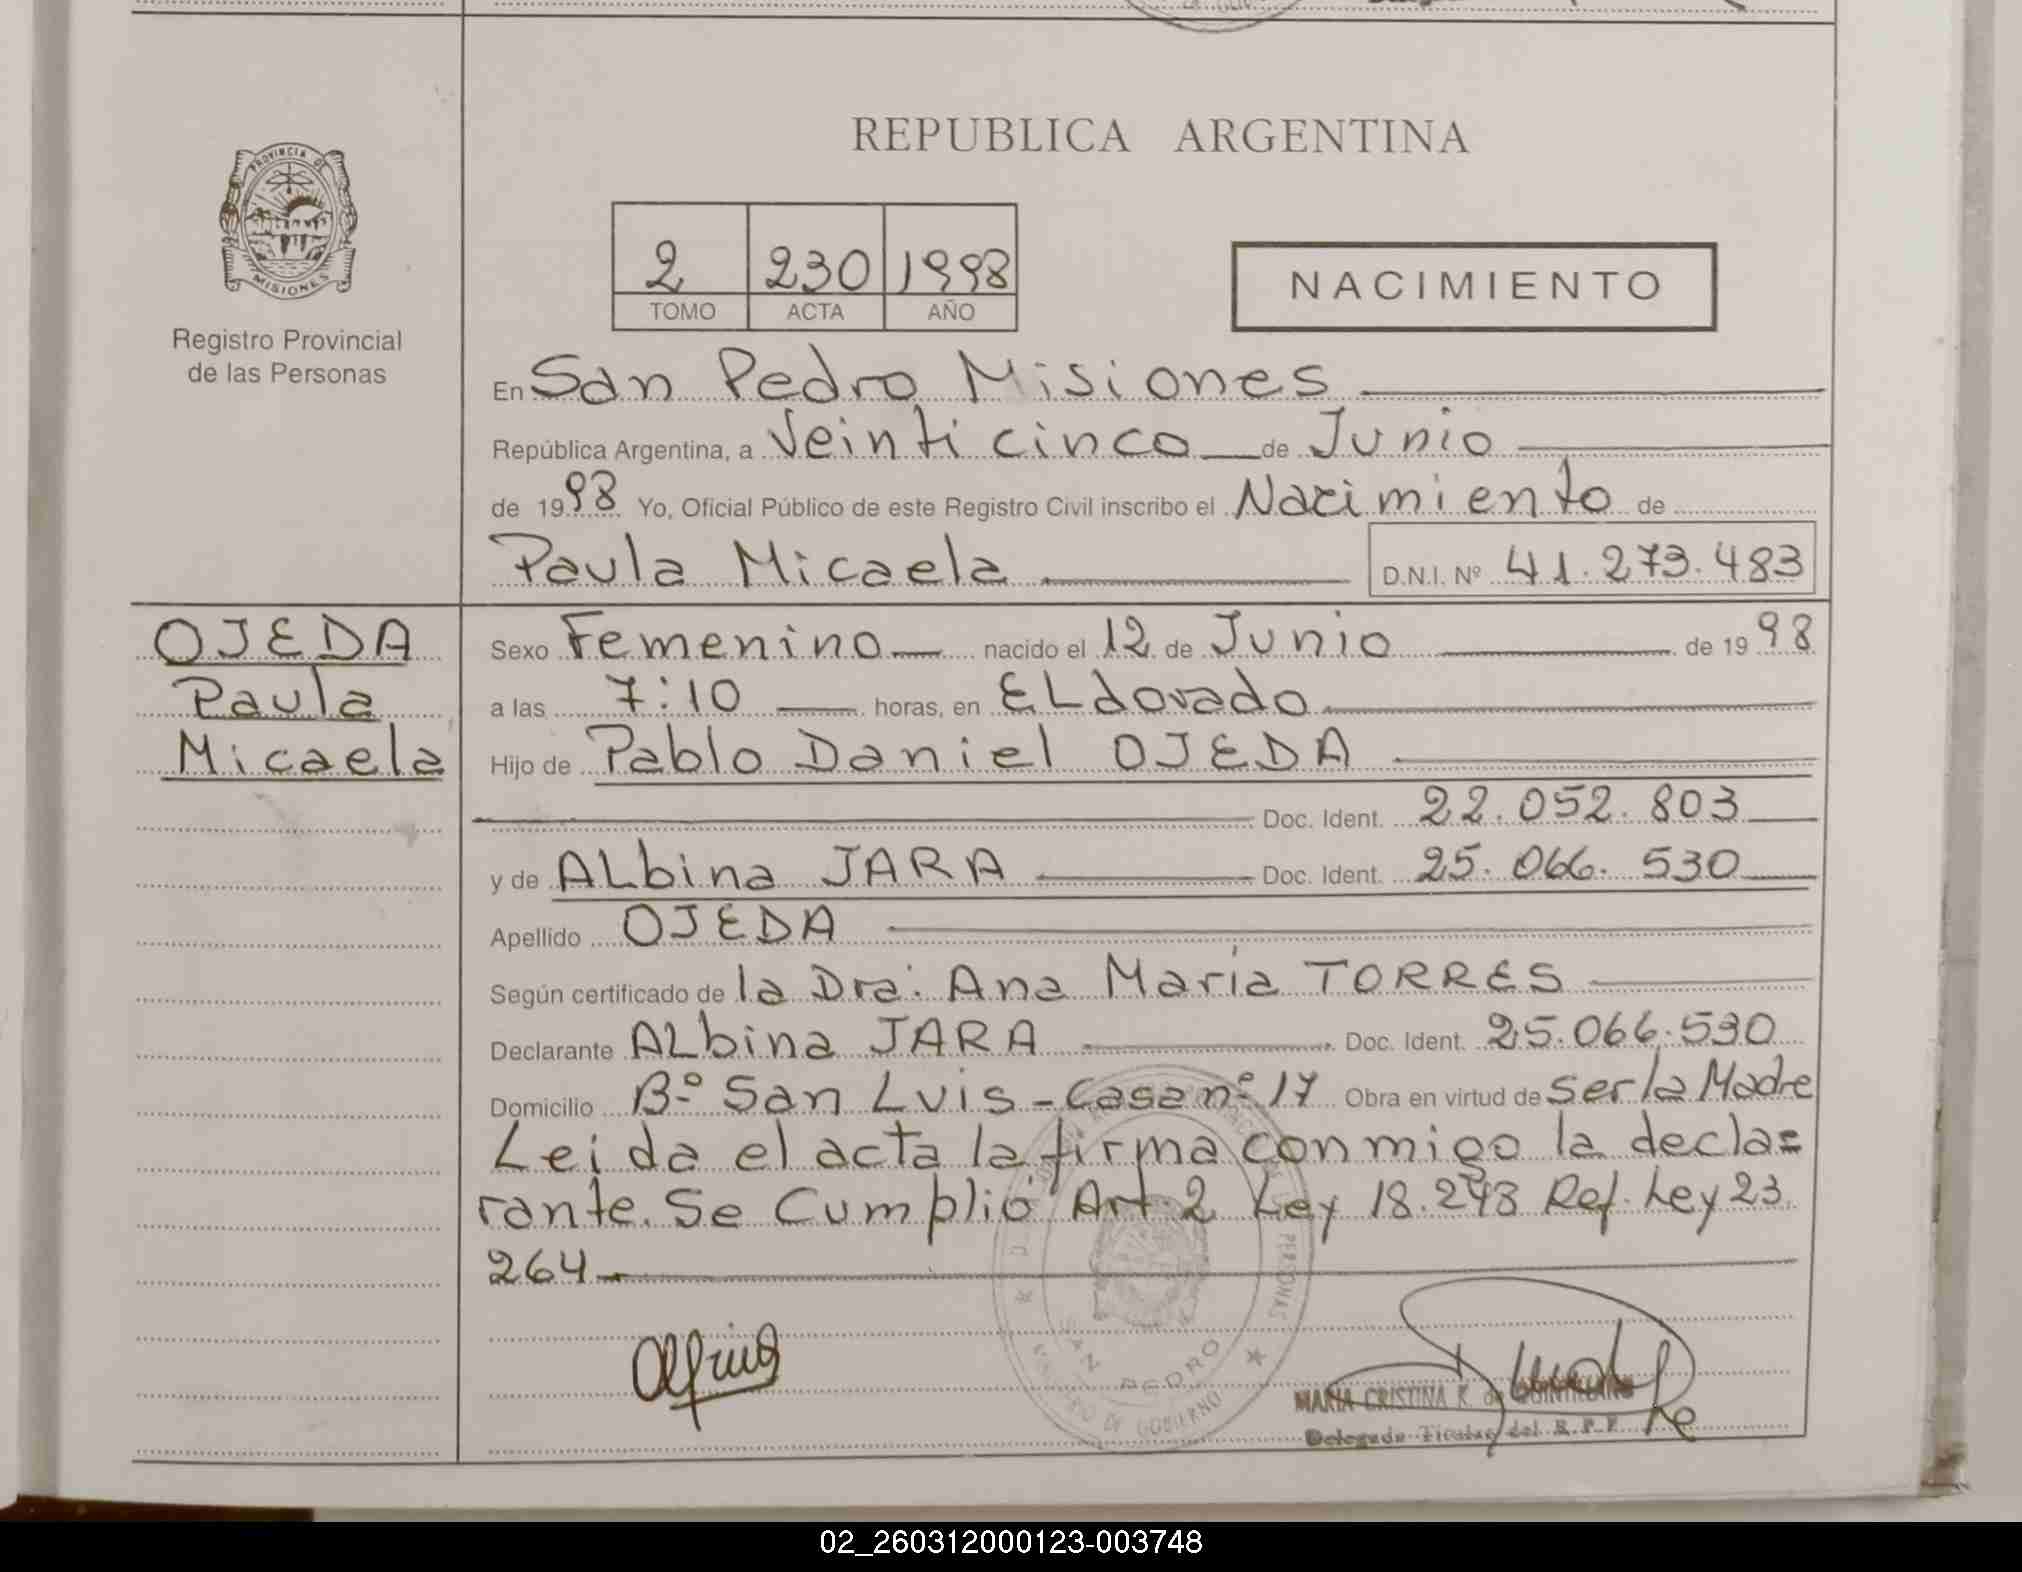 REPUBLICA ARGENTINA
PROVINCIA DE
MISIONES
Registro Provincial
de las Personas
2 230 1998
TOMO ACTA AÑO
NACIMIENTO
En San Pedro Misiones
República Argentina, a Veinti cinco de Junio
de 1998 Yo, Oficial Público de este Registro Civil inscribo el Nacimiento de
Paula Micaela D.N.I. Nº 41.273.483
OJEDA
Paula
Micaela
Sexo Femenino nacido el 12 de Junio de 1998
a las 7:10 horas, en ELdorado
Hijo de Pablo Daniel OJEDA
Doc. Ident. 22.052.803
y de ALbina JARA Doc. Ident. 25.066.530
Apellido OJEDA
Según certificado de la Dra. Ana María TORRES
Declarante ALbina JARA Doc. Ident. 25.066.530
Domicilio Bº San Luis - Casa nº 17 Obra en virtud de ser la Madre
Leida el acta la firma conmigo la decla=
rante. Se Cumplió Art. 2 Ley 18.248 Ref. Ley 23.
264
SAN PEDRO
DE GOBIERNO
PERSONAS
MARIA CRISTINA R. de
Delegada Titular del R.P.P.
02_260312000123-003748